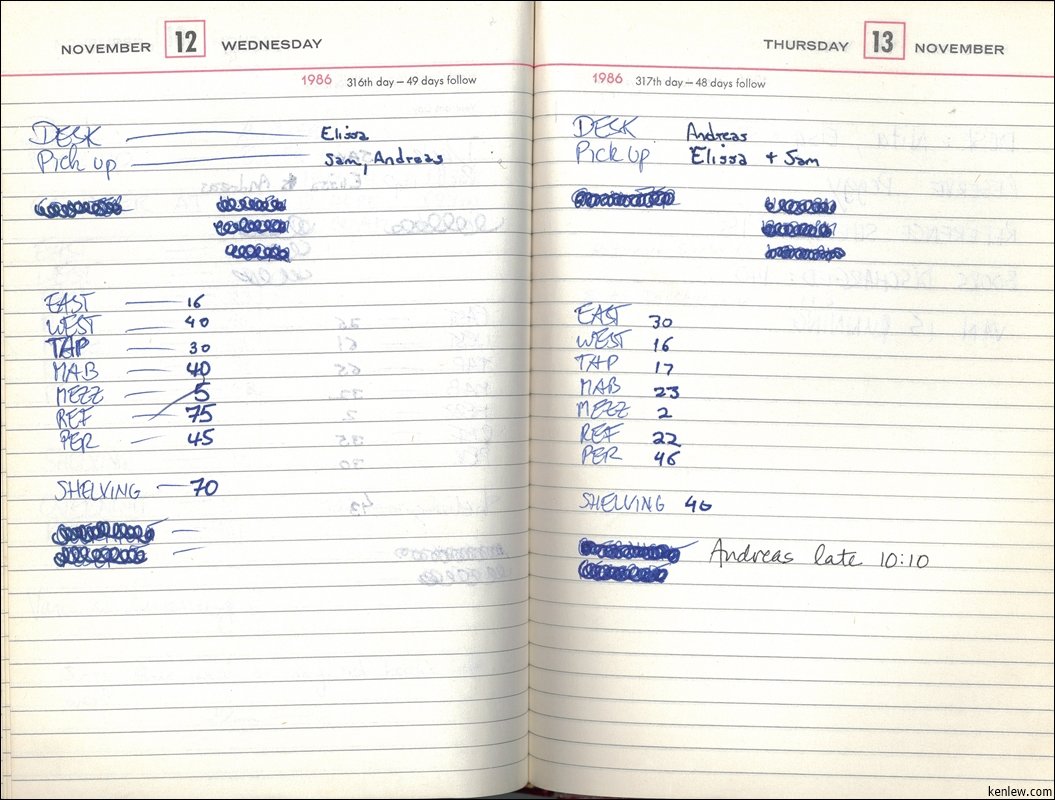 NOVEMBER 12 WEDNESDAY
1986 316th day — 49 days follow
DESK — Elissa
Pick up — Sam, Andreas
EAST — 16
WEST — 40
TAP — 30
MAB — 40
MEZZ — 5
REF — 75
PER — 45
SHELVING — 70
THURSDAY 13 NOVEMBER
1986 317th day — 48 days follow
DESK Andreas
Pick up Elissa + Sam
EAST 30
WEST 16
TAP 17
MAB 23
MEZZ 2
REF 22
PER 46
SHELVING 40
Andreas late 10:10
kenlew.com